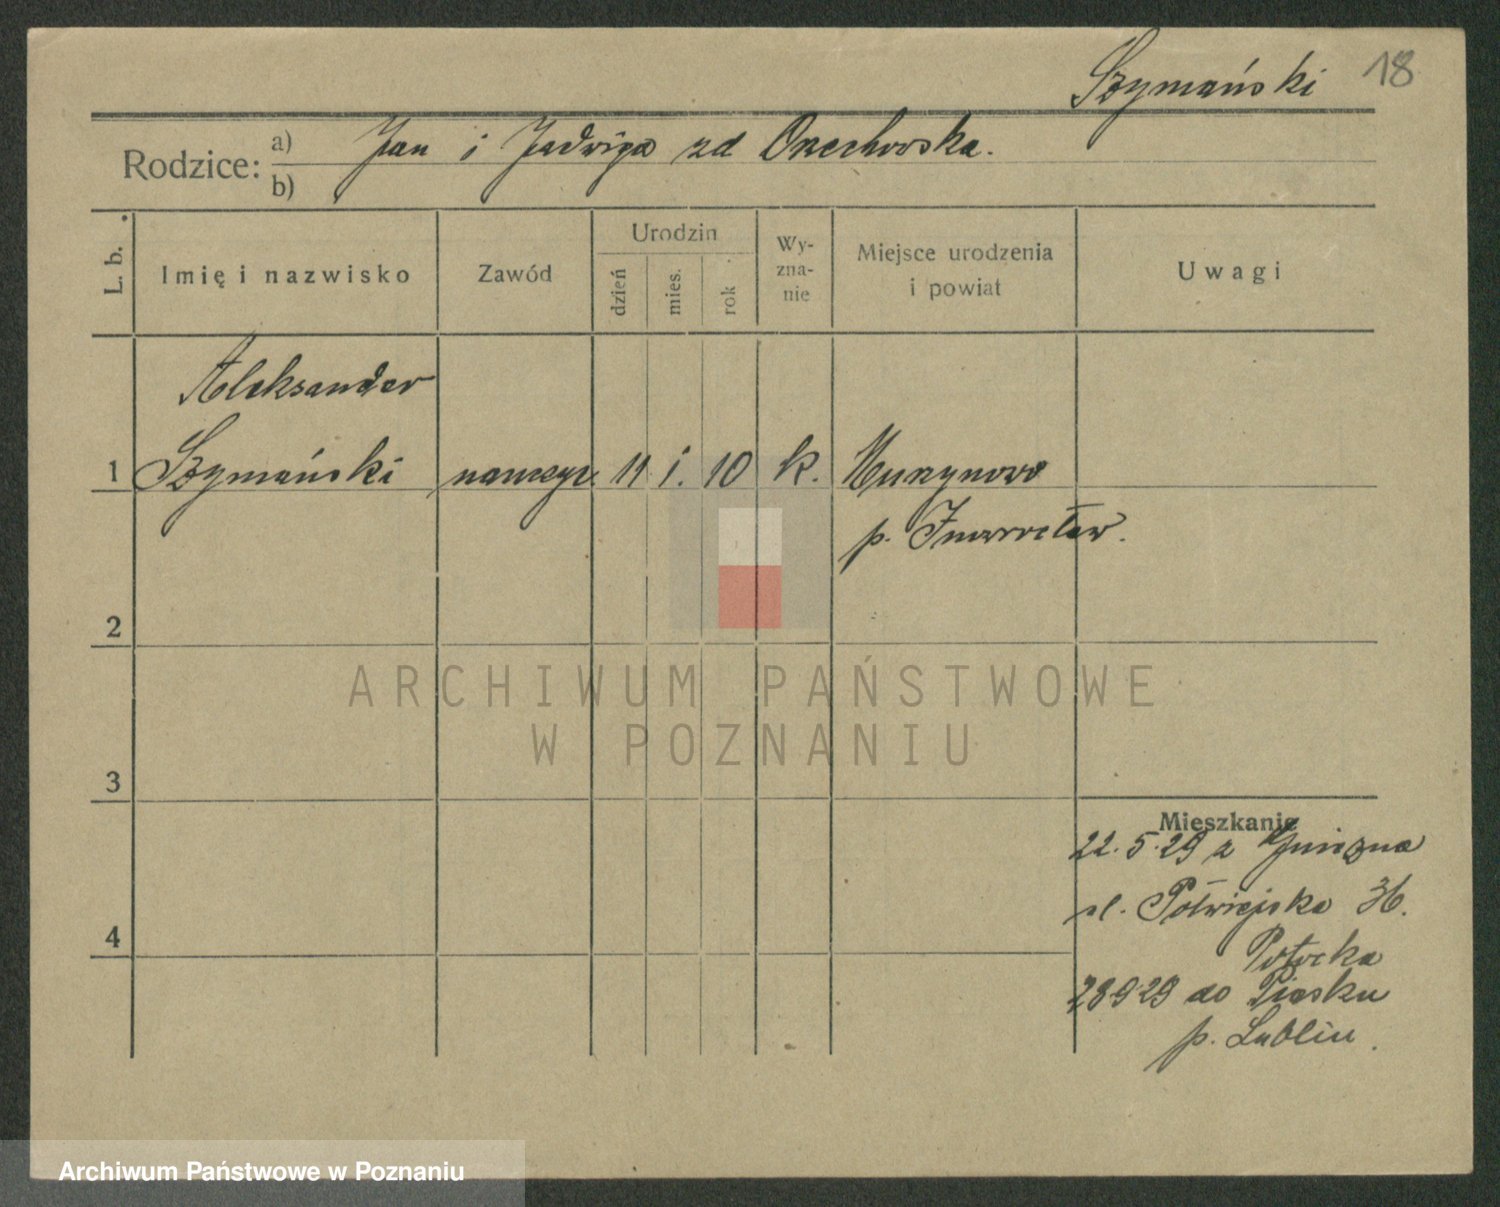 Szymański 18
Rodzice: a) Jan i Jadwiga zd Orzechowska.
b)
L. b. Imię i nazwisko Zawód Urodzin dzień mies. rok Wyzna-nie Miejsce urodzenia i powiat Uwagi
Aleksander
1 Szymański nauczyc. 11 i. 10 k. Murzynowo
p. Inowrocław.
2
3
4
Mieszkanie
22.5.29 z Gniezna
ul. Półwiejska 36.
Potocka
28929 do Piasku
p. Lublin.
ARCHIWUM PAŃSTWOWE
W POZNANIU
Archiwum Państwowe w Poznaniu